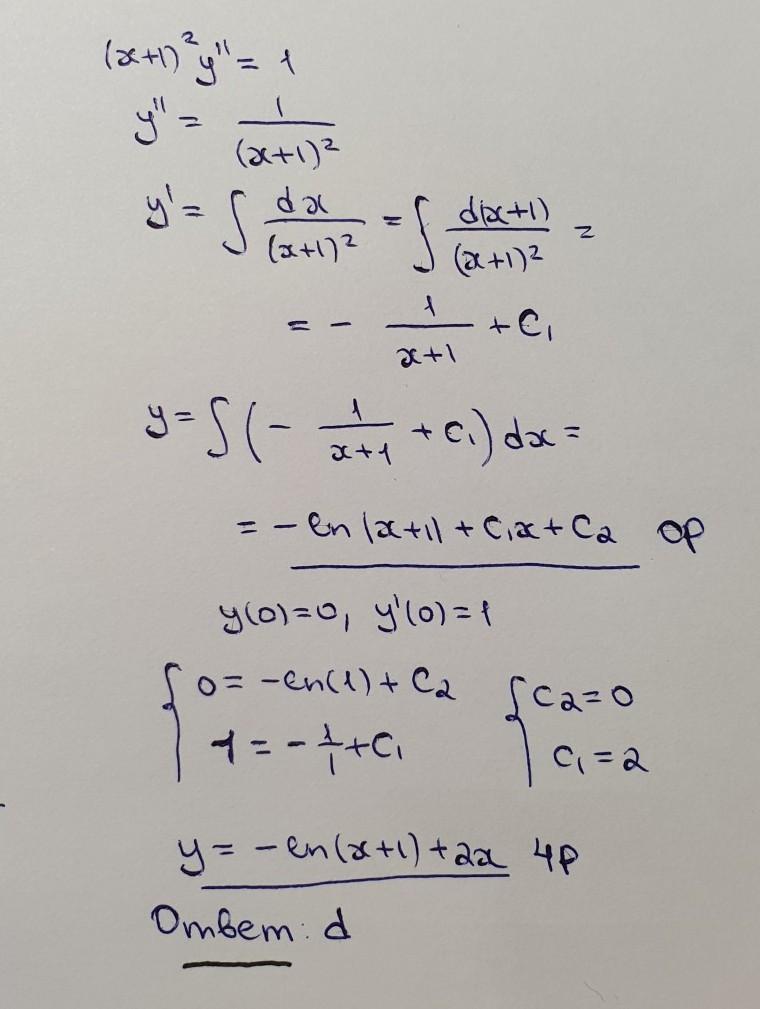 (x+1)² y'' = 1
y'' = 1/(x+1)²
y' = ∫ dx/(x+1)² = ∫ d(x+1)/(x+1)² =
= - 1/(x+1) + C₁
y = ∫ (- 1/(x+1) + C₁) dx =
= - ln|x+1| + C₁x + C₂ ОР
y(0)=0, y'(0)=1
{ 0 = -ln(1) + C₂ { C₂=0
1 = - 1/1 + C₁ C₁=2
y = - ln(x+1) + 2x ЧР
Ответ: d